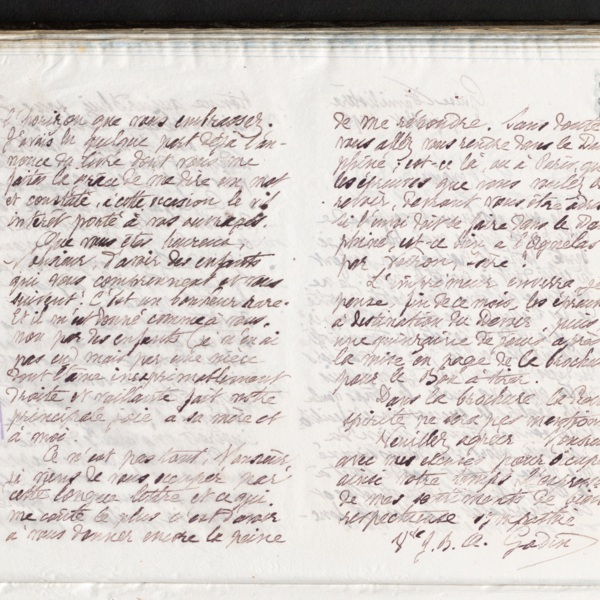 l'horizon que vous embrassez.
J'avais lu quelque part déjà l'an-
nonce du livre dont vous me
faites le
et constate, à cette occasion le vif
intérêt porté à vos ouvrages.
Que vous êtes heureux
Monsieur d'avoir des enfants
qui vous comprennent et vous
suivent! C'est un bonheur rare.
Et il m'est donné comme à vous,
non par des enfants (je n'en ai
pas eu) mais par une nièce
dont l'âme inexprimablement
droite et vaillante fait notre
principale joie à sa mère et
à moi.
Ce n'est pas tout, Monsieur,
je viens de vous occuper par
cette longue lettre et ce qui
me coûte le plus c'est d'avoir
à vous donner encore la peine
de me répondre. Sans doute
vous allez vous rendre dans le Dau
phiné, est-ce là ou à Paris que
les épreuves que vous voulez
revoir, devront vous être adres
Si l'envoi doit se faire dans le Dau
phiné, est-ce bien à
par
L'imprimeur enverra, je
pense, fin de ce mois, les épreuves
à destination du Devoir, puis
une quinzaine de jours après
la mise en page de la brochure
pour le Bon à tirer.
Dans la brochure la Revue
spirite ne sera pas mentionn
Veuillez agréer Monsieur
avec mes excuses pour occuper
ainsi votre temps l'assurance
de mes sentiments de bien
respectueuse sympathie
Vve J. B. A. Godin